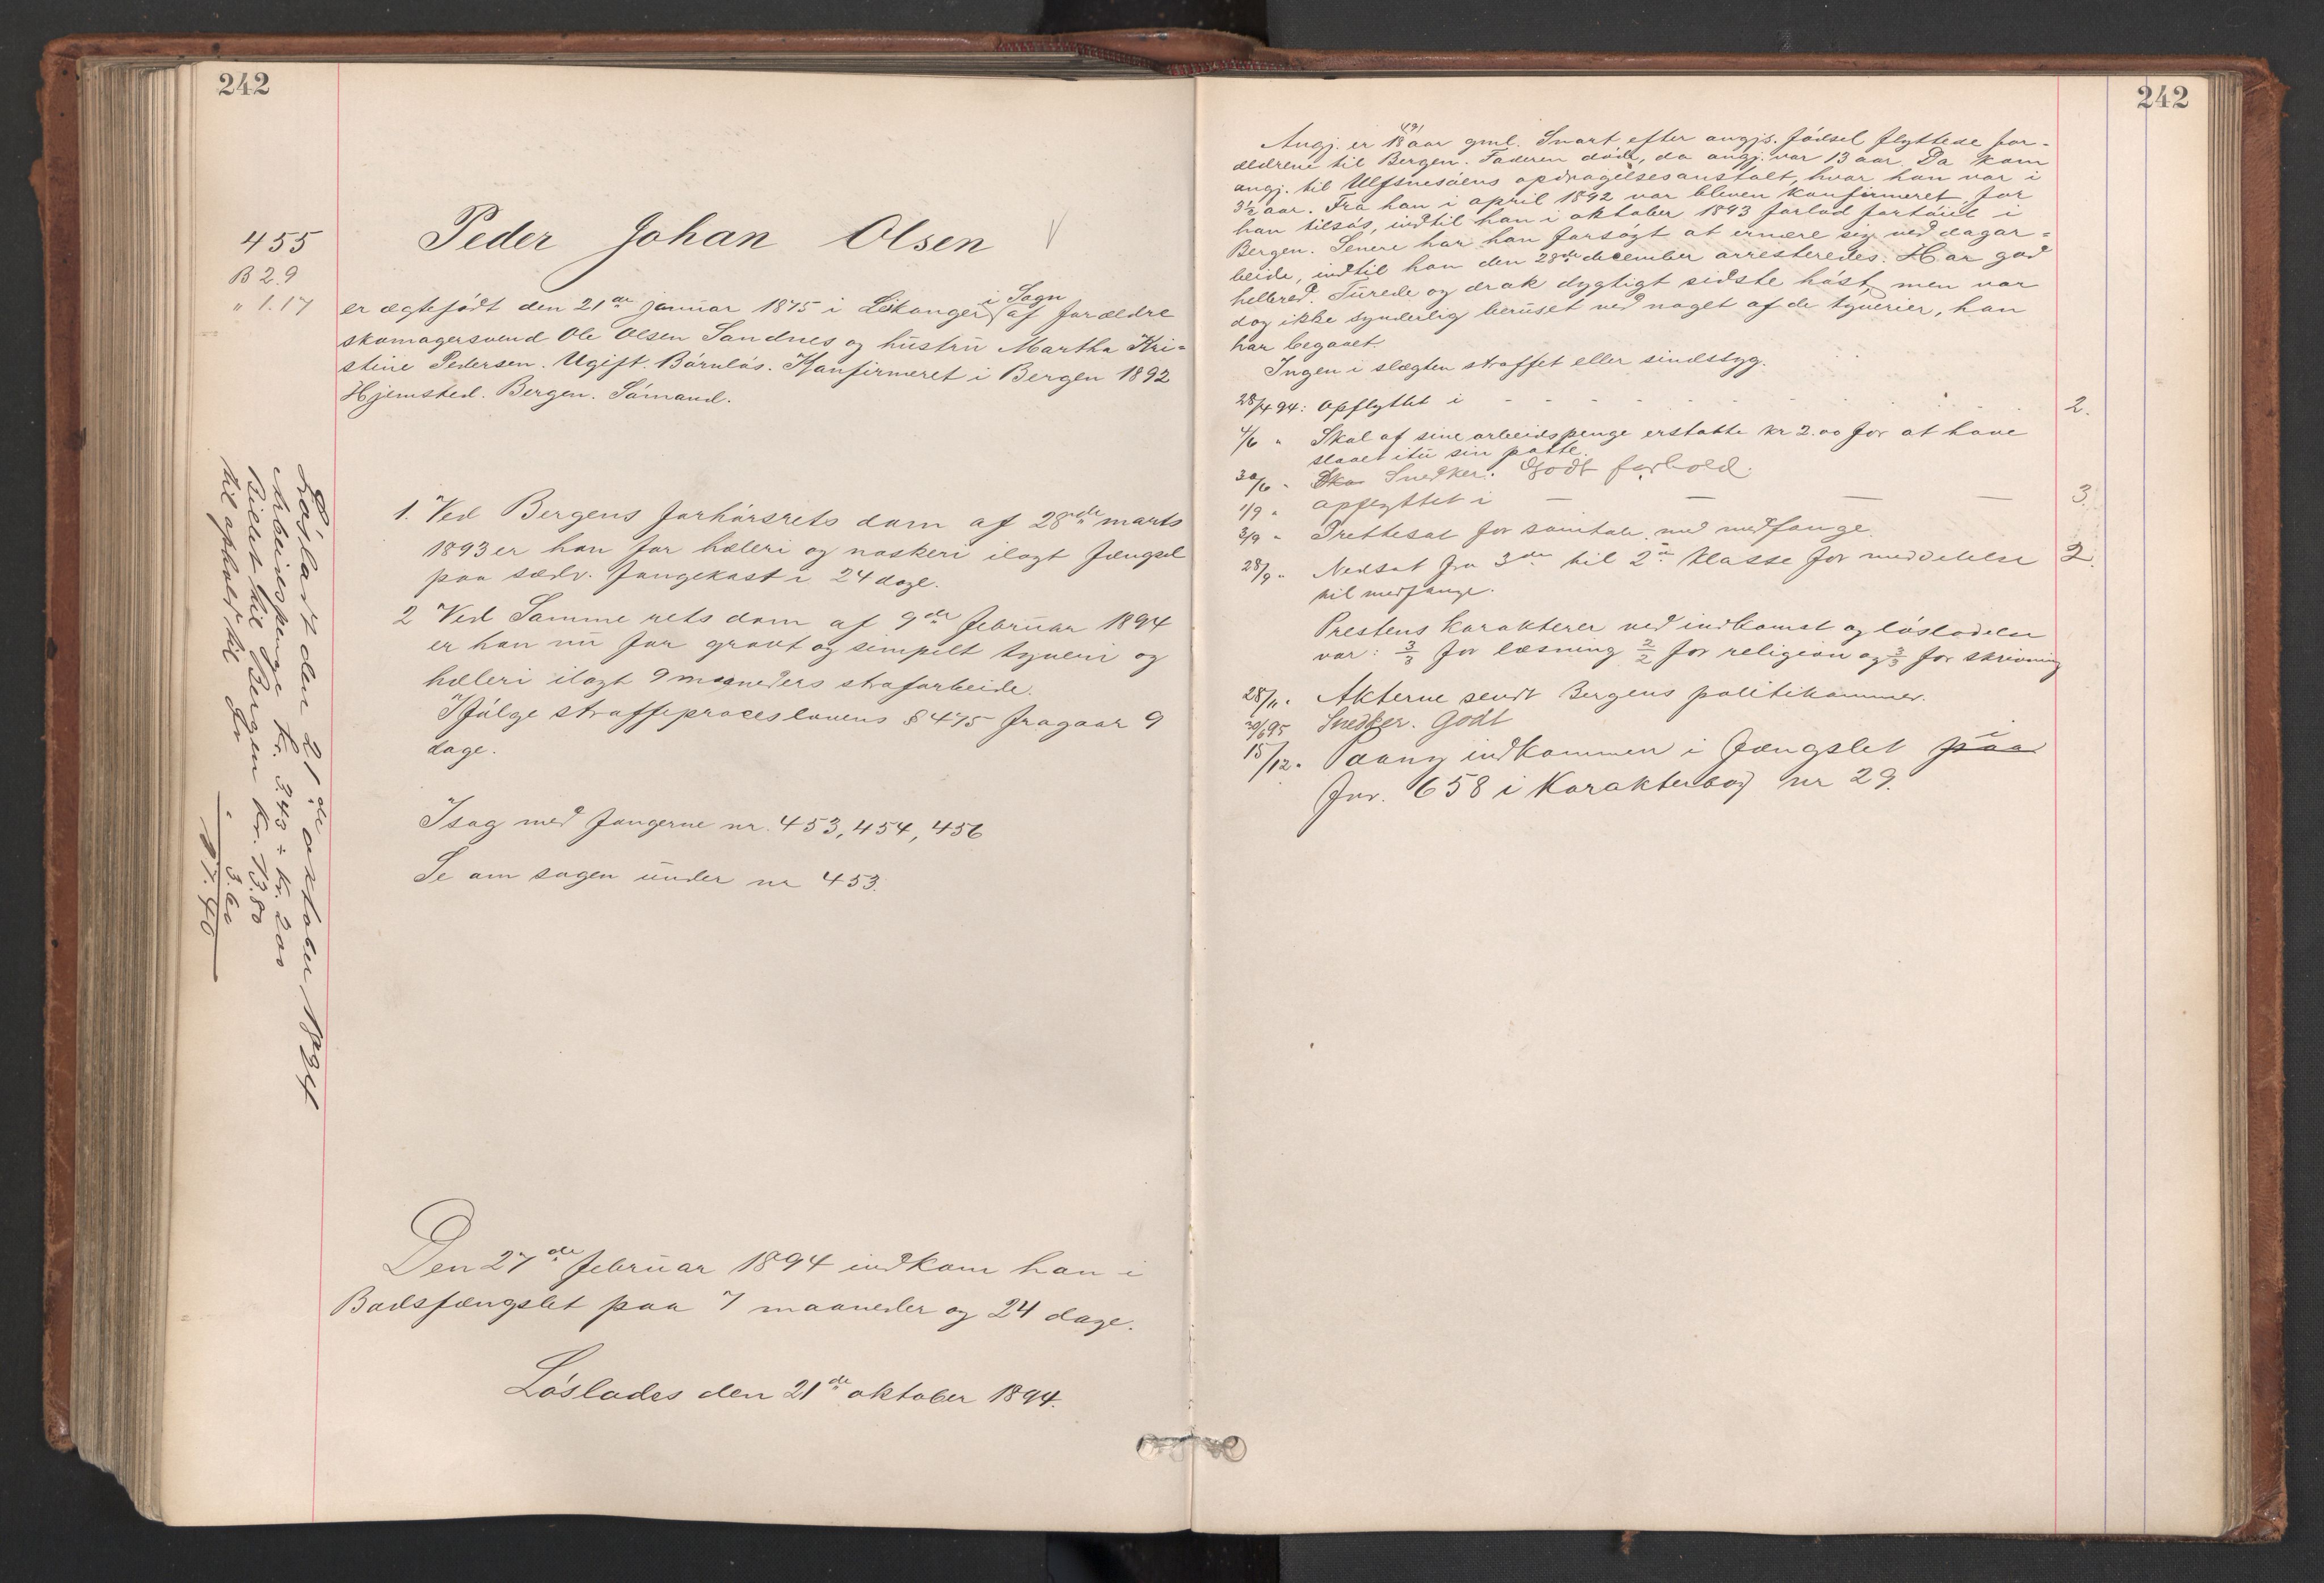 242
455
B 29
" 1.17
Peder Johan Olsen
i Sogn
er ægtefødt den 21de januar 1875 i Leikanger af forældre
skomagersvend Ole Olsen Sandnes og hustru Martha Kri-
stine Pedersen. Ugift. Børnløs. Konfirmeret i Bergen 1892
Hjemsted. Bergen. Sømand.
1. Ved Bergens forhørsrets dom af 28de marts
1893 er han for hæleri og naskeri ilagt fængsel
paa sædv. fangekost i 24 dage.
2 Ved Samme rets dom af 9de februar 1894
er han nu for grovt og simpelt tyveri og
hæleri ilagt 9 maaneders strafarbeide.
Ifølge straffeproceslovens § 475 fragaar 9
dage.
I sag med fangerne nr. 453, 454, 456
Se om sagen under nr 453.
Den 27de februar 1894 indkom han i
Bodsfængslet paa 7 maaneder og 24 dage.
Løslades den 21de oktober 1894.
Løsladt den 21de oktober 1894
Arbeidspenge kr. 3.43 ÷ kr. 2.00
Billet til Bergen kr. 13.80
til ophold til do " 3.60
17.40
242
Angj. er 19 aar gml. Snart efter angjs. fødsel flyttede for-
ældrene til Bergen. Faderen døde, da angj. var 13 aar. Da kom
angj. til Ulfsnesøens opdragelsesanstalt, hvor han var i
3½ aar. Fra han i april 1892 var bleven konfirmeret, for
han tilsøs, indtil han i oktober 1893 forlod fartøiet i
Bergen. Senere har han forsøgt at ernære sig ved dagar-
beide, indtil han den 28de december arresteredes. Har god
helbred. Turede og drak dygtigt sidste høst, men var
dog ikke synderlig beruset ved noget af de tyverier, han
har begaaet.
Ingen i slægten straffet eller sindssyg.
28/4 94: Opflyttet i - - - - - - - - 2.
4/6 " Skal af sine arbeidspenge erstatte kr 2.00 for at have
slaaet itu sin potte.
30/6 " Ska Snedker. Godt forhold.
1/9 " Opflyttet i — — — — 3.
3/9 " Irettesat for samtale med medfange.
28/9 " Nedsat fra 3de til 2n klasse for meddelelse 2.
til medfange.
Prestens karakterer ved indkomst og løsladelse
var: 3/3 for læsning 2/2 for religion og 3/3 for skrivning
28/11 " Akterne sendt Bergens politikammer.
29/6 95 Snedker. Godt
15/12 " Paany indkommen i fængslet paa i
fnr. 658 i Karakterbog nr 29.